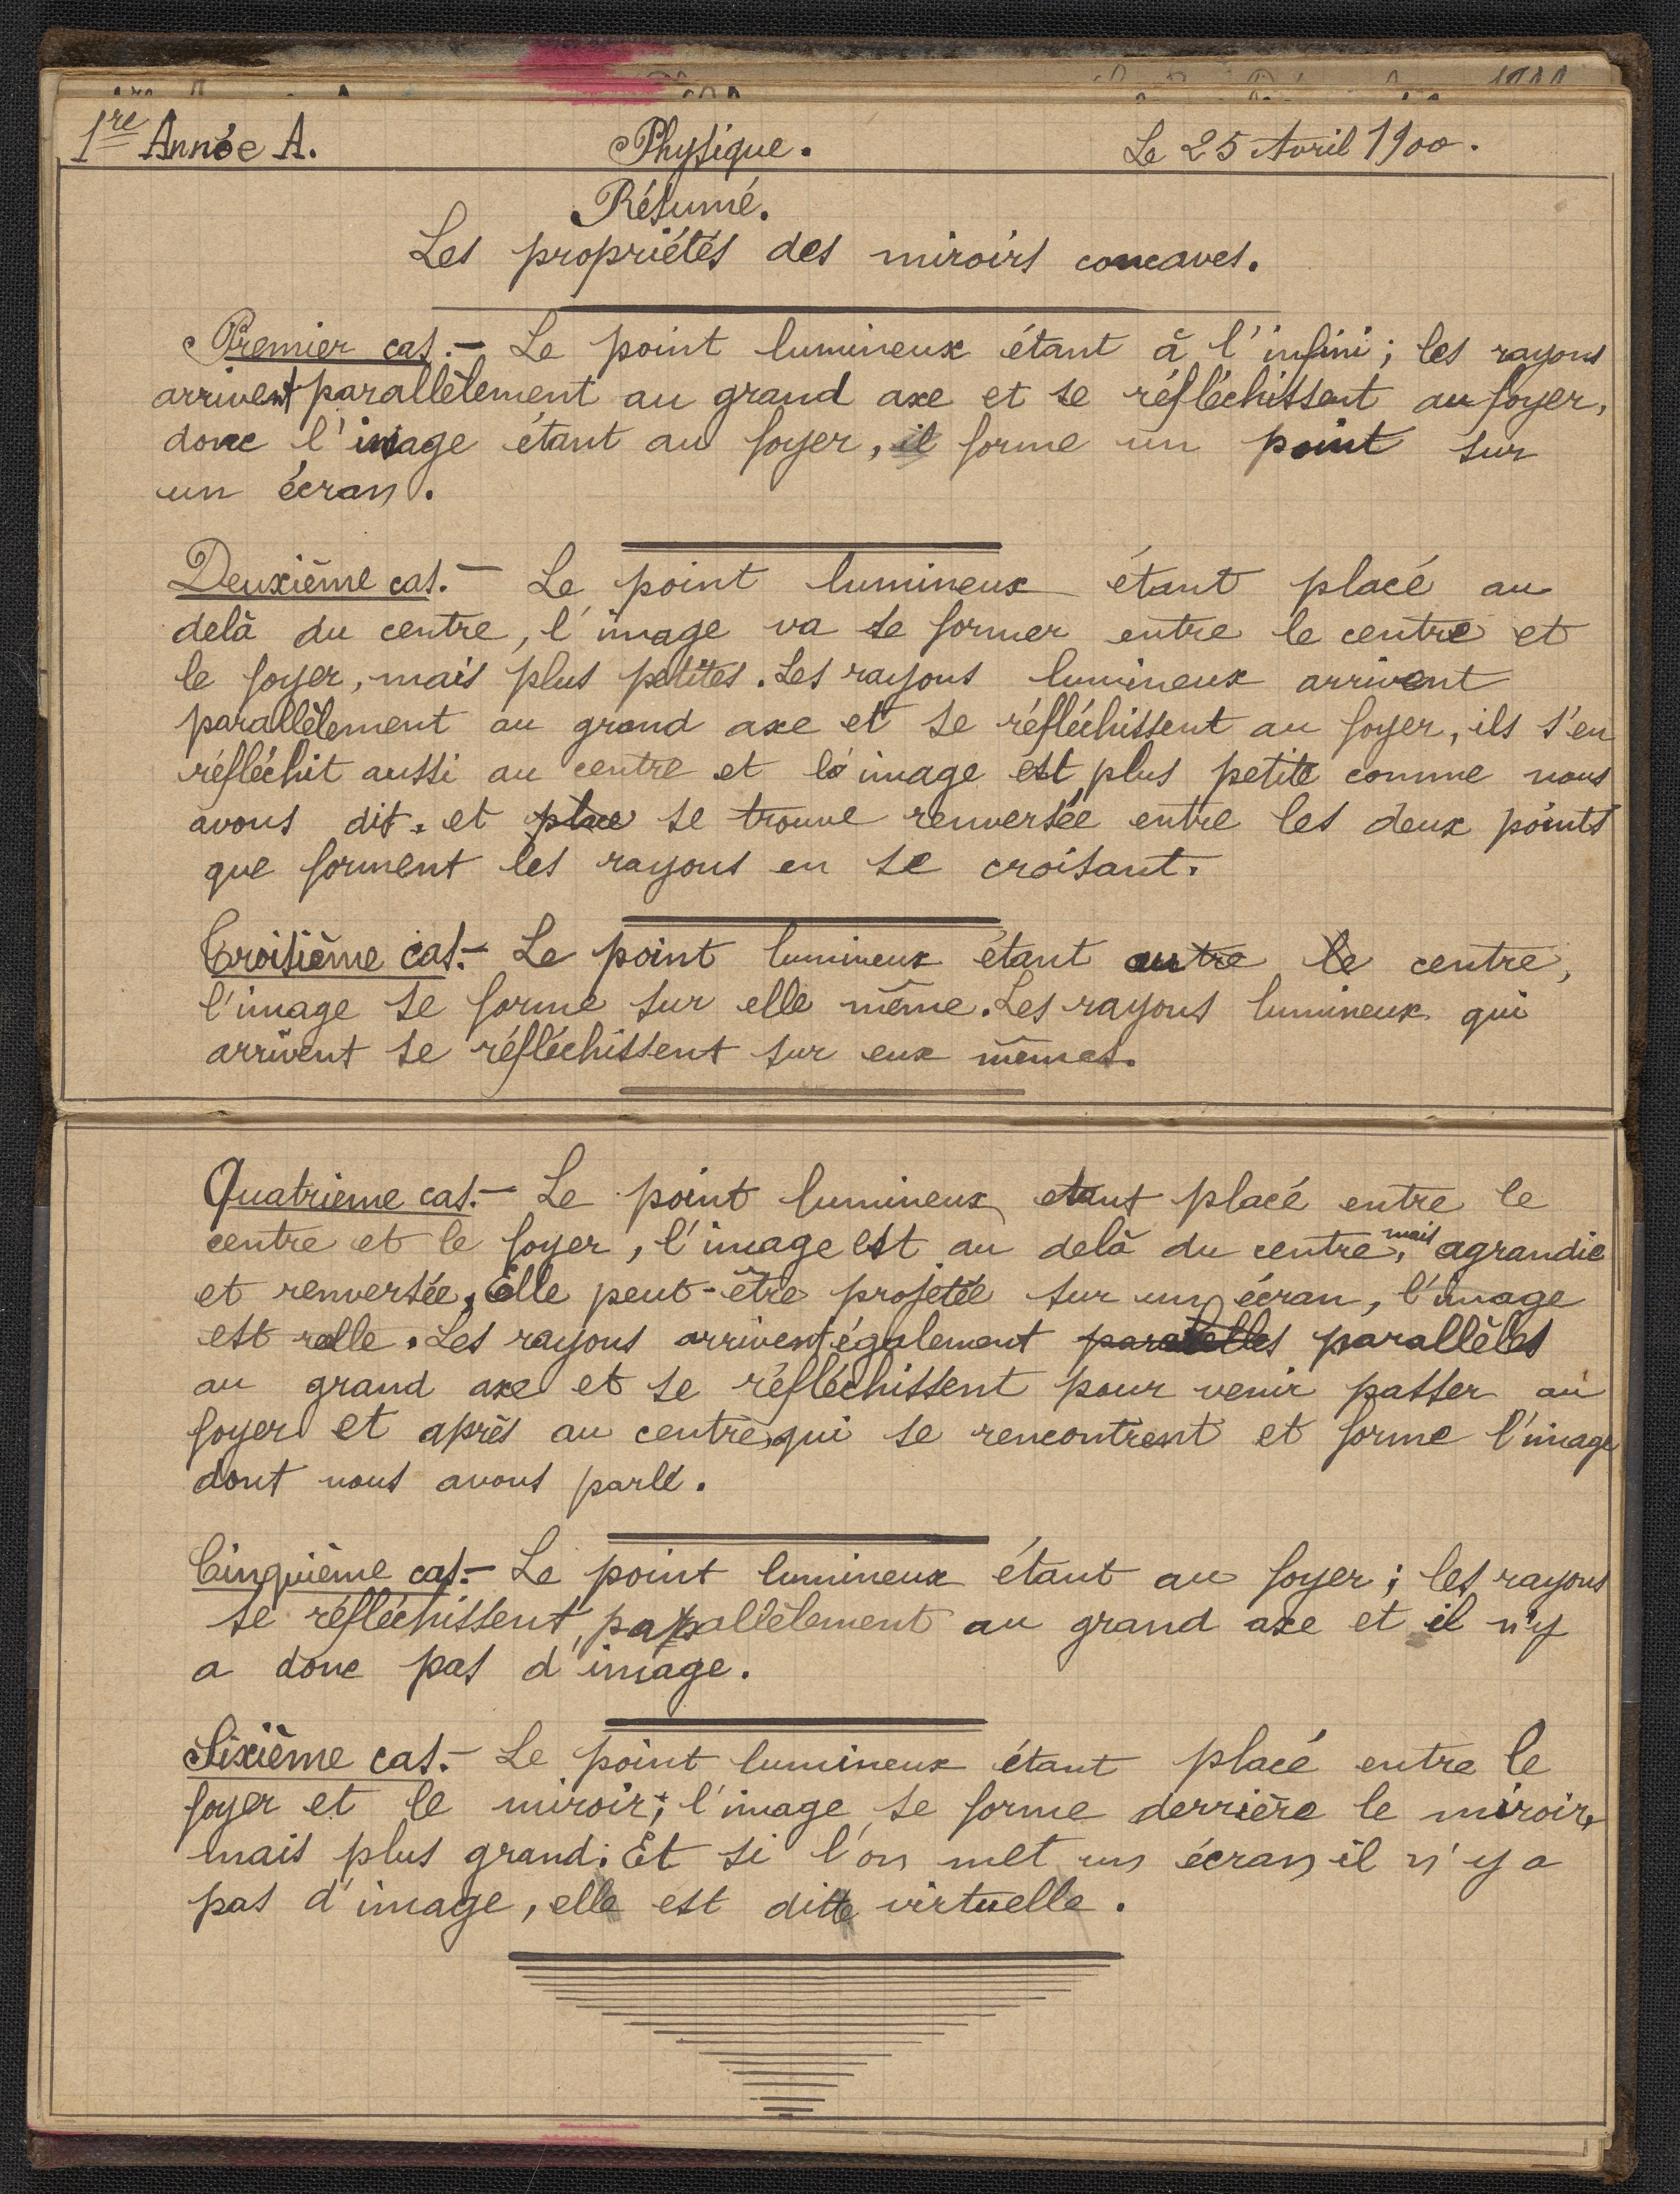 1re Année A. Physique. Le 25 Avril 1900.
Résumé.
Les propriétés des miroirs concaves.
Premier cas.- Le point lumineux étant à l'infini; les rayons
arrivent parallèlement au grand axe et se réfléchissent au foyer,
donc l'image étant au foyer, il forme un point sur
un écran.
Deuxième cas.- Le point lumineux étant placé au
delà du centre, l'image va se former entre le centre et
le foyer, mais plus petites. Les rayons lumineux arrivent
parallèlement au grand axe et se réfléchissent au foyer, ils s'en
réfléchit aussi au centre et l'image est plus petite comme nous
avons dit. et place se trouve renversée entre les deux points
que forment les rayons en se croisant.
Troisième cas.- Le point lumineux étant autre le centre,
l'image se forme sur elle même. Les rayons lumineux qui
arrivent se réfléchissent sur eux mêmes.
Quatrieme cas.- Le point lumineux etant placé entre le
centre et le foyer, l'image est au delà du centre, mais agrandie
et renversée. Elle peut-être projetée sur un écran, l'image
est relle. Les rayons arrivent également paralelles parallèles
au grand axe et se réfléchissent pour venir passer au
foyer et après au centre, qui se rencontrent et forme l'image
dont nous avons parlé.
Cinquième cas.- Le point lumineux étant au foyer; les rayons
se réfléchissent, parallèlement au grand axe et il n'y
a donc pas d'image.
Sixième cas.- Le point lumineux étant placé entre le
foyer et le miroir; l'image se forme derrière le miroir,
mais plus grand. Et si l'on met un écran il n'y a
pas d'image, elle est ditte virtuelle.